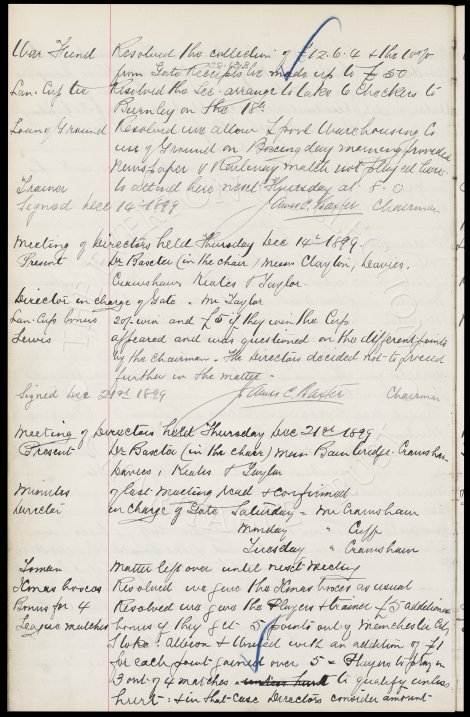 War Fund Resolved the collection of £12.6.4 & the 10%
from Gate Receipts be made up to £50.
Lan. Cup tie Resolved the Sec. arrange to take 6 checkers to
Burnley on the 18th
Loan of Ground Resolved we allow L'pool Warehousing Co
use of Ground on Boxing day morning provided
Newspaper v Railway match not played here
Trainer to attend here next Thursday at 8.0
Signed Dec 14th 1899 James C. Baxter Chairman
Meeting of Directors held Thursday Dec 14th 1899.
Present Dr Baxter (in the chair) Messrs Clayton, Davies,
Crawshaw, Keates & Taylor.
Director in charge of Gate - Mr Taylor
Lan. Cup bonus 20/- win and £5 if they win the Cup
Lewis appeared and was questioned on the different points
by the Chairman. The Directors decided not to proceed
further in the matter.
Signed Dec 21st 1899 James C. Baxter Chairman
Meeting of Directors held Thursday Dec 21st 1899
Present Dr Baxter (in the chair) Messrs Bainbridge, Crawshaw
Davies, Keates & Taylor
Minutes of last meeting read & confirmed
Director in charge of Gate Saturday = Mr Crawshaw
Monday " Cuff
Tuesday " Crawshaw
Toman Matter left over until next meeting
Xmas boxes Resolved we give the Xmas boxes as usual
Bonus for 4 Resolved we give the Players & trainer £5 additional
League matches bonus if they get 5 points out of Manchester City
Stoke. Albion & United with an addition of £1
for each point gained over 5 = Players to play in
3 out of 4 matches to qualify unless
hurt: & in that case Directors consider amount